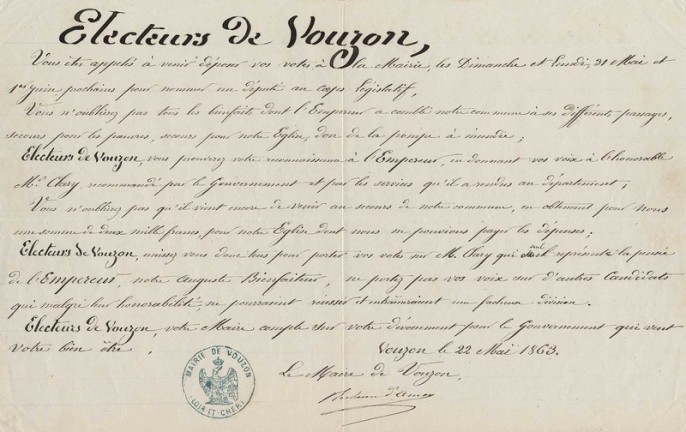 Electeurs de Vouzon,
Vous êtes appelés à venir déposer vos votes, à la Mairie, les Dimanche et Lundi, 31 Mai et
1er Juin prochains pour nommer un député au corps législatif,
Vous n'oublierez pas tous les bienfaits dont l'Empereur a comblé notre commune à ses différents passages,
secours pour les pauvres, secours pour notre Eglise, don de la pompe à incendie;
Electeurs de Vouzon, vous prouverez votre reconnaissance à l'Empereur, en donnant vos voix à l'honorable
Mr. Clary, recommandé par le Gouvernement et par les services qu'il a rendus au département;
Vous n'oublierez pas qu'il vient encore de venir au secours de notre commune, en obtenant pour nous
une somme de deux mille francs, pour notre Eglise dont nous ne pouvions payer les dépenses;
Electeurs de Vouzon, unissez vous donc tous pour porter vos votes sur M. Clary qui seul représente la pensée
de l'Empereur, notre Auguste Bienfaiteur, ne portez pas vos voix sur d'autres Candidats
qui malgré leur honorabilité, ne pourraient réussir et entraineraient une facheuse division.
Electeurs de Vouzon, votre Maire compte sur votre dévouement pour le Gouvernement qui veut
votre bien être.
Vouzon le 22 Mai 1863.
Le Maire de Vouzon,
MAIRIE DE VOUZON
(LOIR ET CHER)